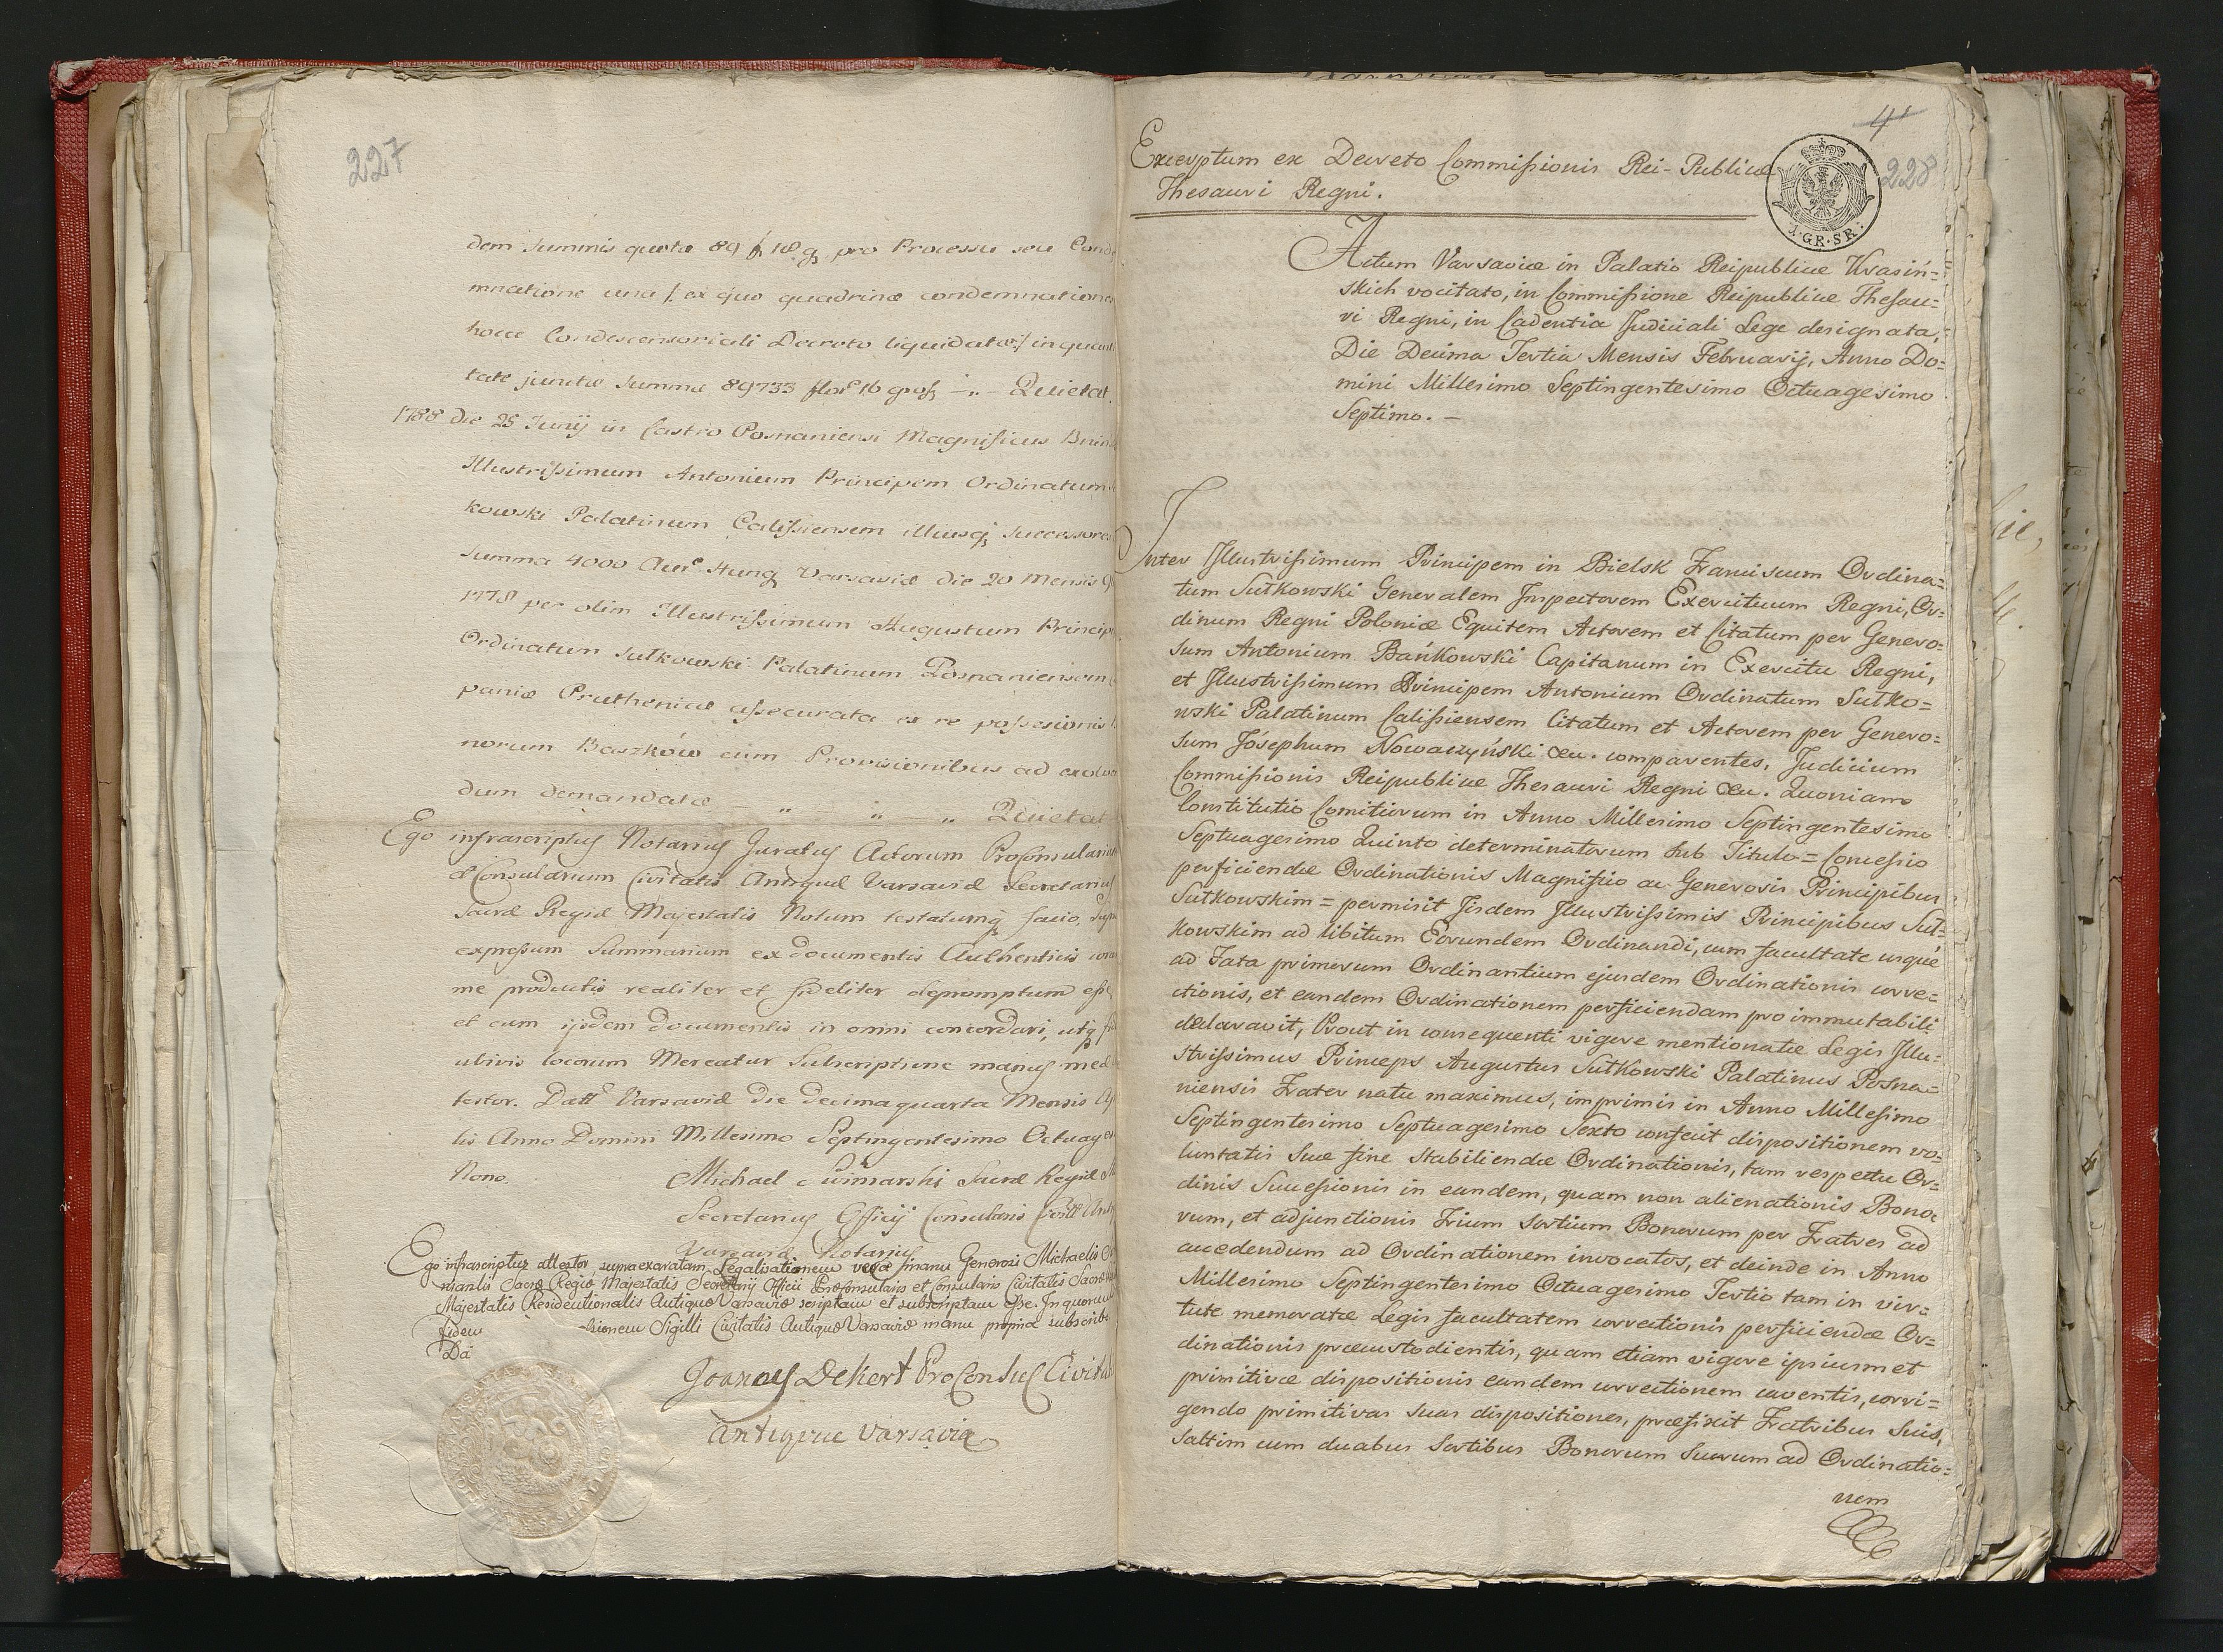 227
dem Summis quota 89 f 18 gz pro Processu seu Cond
mnatione una /: ex quo quadrinæ condemnationes
hocce Condescensoriali Decreto liquidatæ :/ in quanti
tate junctæ Summæ 89733 flor 16 gross -"- Quietat.
1788 die 25 Junij in Castro Posnaniensi Magnificus
Illustrissimum Antonium Principem Ordinatum
kowski Palatinum Calissiensem illiusq Successores
Summa 4000 Aur Hung Varsaviæ die 20 Mensis
1778 per olim Illustrissimum Augustum Princip
Ordinatum Sułkowski Palatinum Posnaniensem
paniæ Prutheniæ assecurata ex re possesionis
norum Baszków cum Provisionibus ad exolven
dum demandatæ - " " " Quietat
Ego infrascriptus Notarius Juratus Actorum Proconsularium
& Consularium Civitatis Antiquæ Varsaviæ Secretarius
Sacræ Regiæ Majestatis Notum testatumq facio, Supra
expressum Summarium ex documentis Authenticis coram
me productis realiter et fideliter depromptum esse
et cum ijsdem documentis in omni concordari, utq fid
ubivis locorum Mereatur Subscriptione manus meæ
testor. Datt Varsaviæ die decima quarta Mensis Ap
lis Anno Domini Millesimo Septingentesimo Octuages
Nono. Michael Sacræ Regiæ
Secretarius Officij Consularis Civitt Anti
Varsaviæ Notarius
Ego infrascriptus attestor supraexaratam Legalisationem vera manu Generosi Michaelis
Sacræ Regiæ Majestatis Secretarij Officii Proconsularis et Consularis Civitatis Sacræ
Majestatis Residentionalis Antiquæ Varsaviæ scriptam et subscriptam esse. In quorum
fidem ssionem Sigilli Civitatis Antiquæ Varsaviæ manu propria subscribo
Da
Joannes Dekert ProConsul Civita
Antiquae Varsaviæ
4
228
Excerptum ex Decreto Commissionis Rei-Publicæ
Thesauri Regni.
1.GR.SR.
Actum Varsaviæ in Palatio Reipublicæ Krasiń=
skich vocitato, in Commissione Reipublicæ Thesau=
ri Regni, in Cadentia Judiciali Lege designata,
Die Decima Tertia Mensis Februarij, Anno Do=
mini Millesimo Septingentesimo Octuagesimo
Septimo. -
Inter Illustrissimum Principem in Bielsk Franciscum Ordina=
tum Sułkowski Generalem Inspectorem Exercituum Regni, Or=
dinum Regni Poloniæ Equitem Actorem et Citatum per Genero=
sum Antonium Bańkowski Capitanum in Exercitu Regni,
et Illustrissimum Principem Antonium Ordinatum Sułko=
wski Palatinum Calissiensem Citatum et Actorem per Genero=
sum Jósephum Nowaczyński &c. comparentes, Judicium
Commissionis Reipublicæ Thesauri Regni &c. Quoniam
Constitutio Comitiorum in Anno Millesimo Septingentesimo
Septuagesimo Quinto determinatorum sub Titulo = Concessio
perficiendæ Ordinationis Magnifico ac Generosis Principibus
Sułkowskim = permisit Iisdem Illustrissimis Principibus Suł=
kowskim ad libitum Eorundem Ordinandi, cum facultate usque
ad Fata primorum Ordinantium ejusdem Ordinationis corre=
ctionis, et eandem Ordinationem perficiendam pro immutabili
declaravit, Prout in consequenti vigore mentionatæ Legis Illu=
strissimus Princeps Augustus Sułkowski Palatinus Posna=
niensis Frater natu maximus, imprimis in Anno Millesimo
Septingentesimo Septuagesimo Sexto confecit dispositionem vo=
luntatis Suæ fine stabiliendæ Ordinationis, tam respectu Or=
dinis Successionis in eandem, quam non alienationis Bono=
rum, et adjunctionis Trium Sortium Bonorum per Fratres ad
accedendum ad Ordinationem invocatos, et deinde in Anno
Millesimo Septingentesimo Octuagesimo Tertio tam in vir=
tute memoratæ Legis facultatem correctionis perficiendæ Or=
dinationis præcustodientis, quam etiam vigore ipsiusmet
primitivæ dispositionis eandem correctionem caventis, corri=
gendo primitivas suas dispositiones, præfixit Fratribus Suis,
saltim cum duabus Sortibus Bonorum Suorum ad Ordinatio=
nem